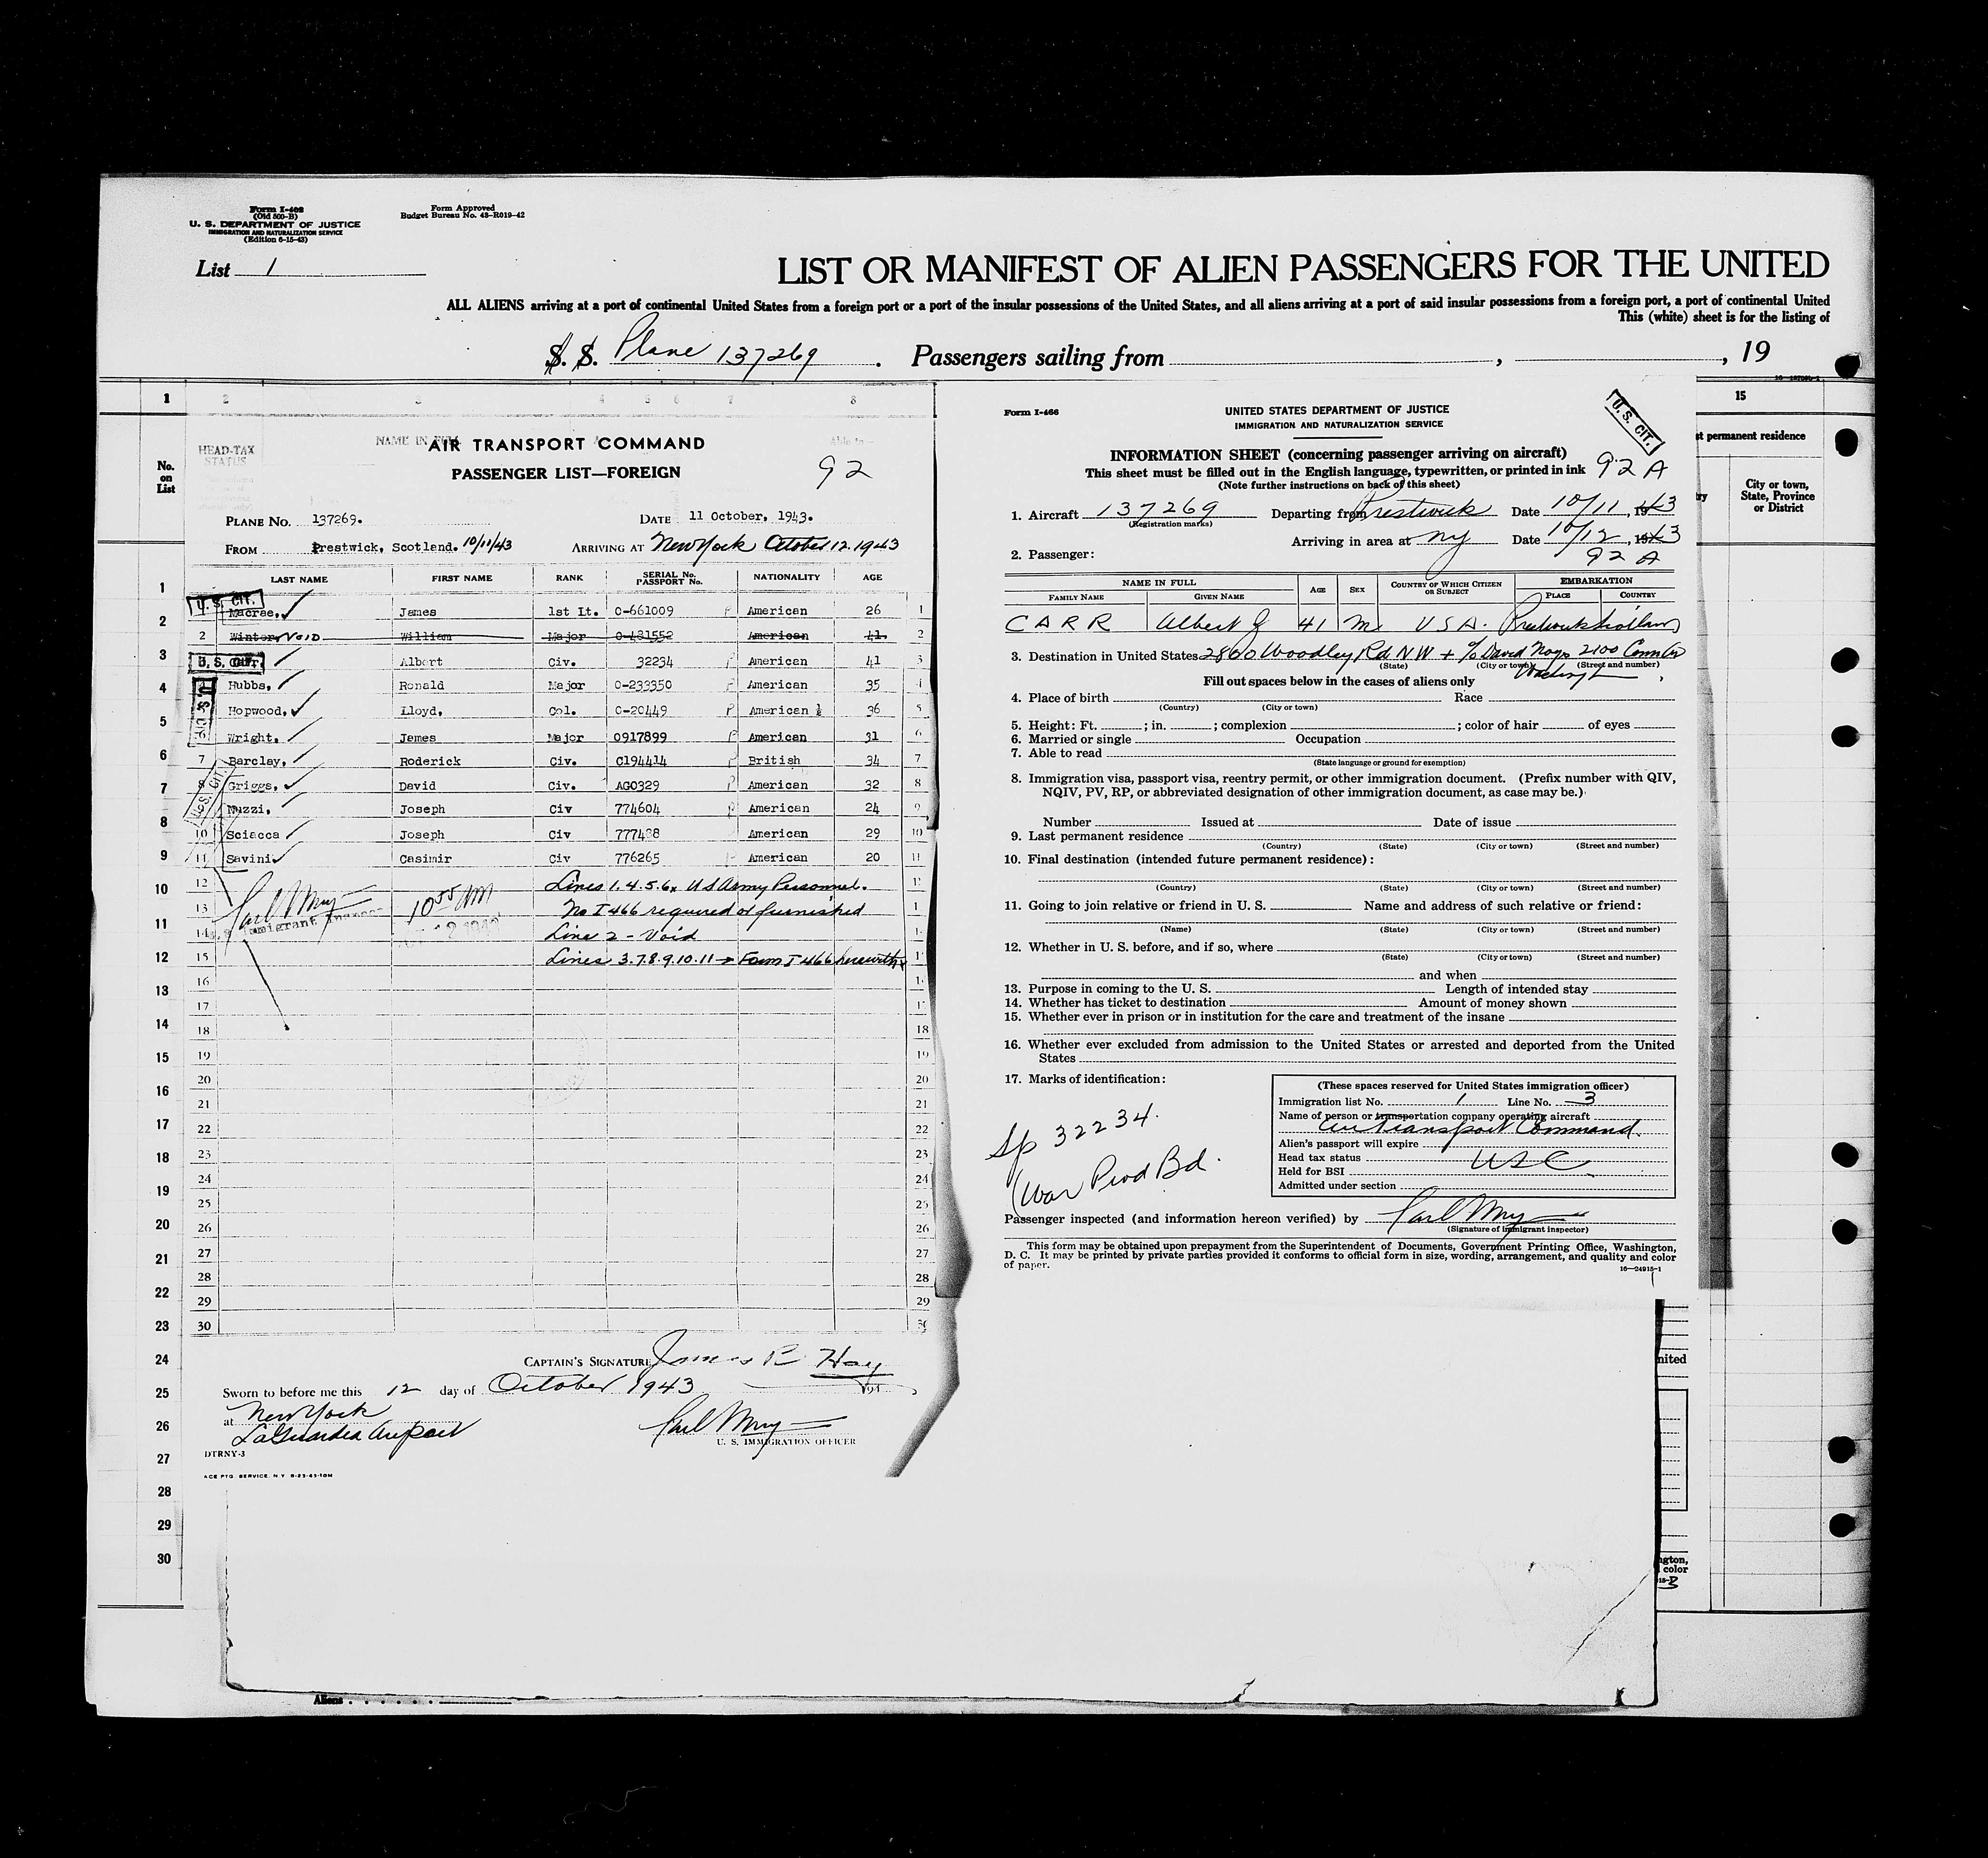 Form I-402
(Old 500-B)
U. S. DEPARTMENT OF JUSTICE
IMMIGRATION AND NATURALIZATION SERVICE
(Edition 6-15-43)
Form Approved
Budget Bureau No. 43-R019-42
List 1
LIST OR MANIFEST OF ALIEN PASSENGERS FOR THE UNITED
ALL ALIENS arriving at a port of continental United States from a foreign port or a port of the insular possessions of the United States, and all aliens arriving at a port of said insular possessions from a foreign port, a port of continental United
This (white) sheet is for the listing of
S. S. Plane 137269. Passengers sailing from , , 19
1 2 3 4 5 6 7 8
HEAD-TAX STATUS
NAME IN FULL
No. on List
AIR TRANSPORT COMMAND
PASSENGER LIST—FOREIGN
92
PLANE No. 137269. DATE 11 October, 1943.
FROM Prestwick, Scotland. 10/11/43 ARRIVING AT New York October 12. 1943
LAST NAME FIRST NAME RANK SERIAL No. PASSPORT No. NATIONALITY AGE
U. S. CIT.
Macrae, James 1st Lt. O-661009 American 26 1
2 Winter, VOID William Major O-481552 American 41 2
U. S. CIT.
Albert Civ. 32234 American 41 3
Hubbs, Ronald Major O-233350 American 35
Hopwood, Lloyd, Col. O-20449 American 36 5
Wright, James Major 0917899 American 31 6
7 Barclay, Roderick Civ. C194414 British 34 7
8 Griggs, David Civ. AGO329 American 32 8
U. S. CIT.
Nuzzi, Joseph Civ 774604 American 24 9
10 Sciacca Joseph Civ 777438 American 29 10
11 Savini Casimir Civ 776265 American 20 11
12 Lines 1. 4. 5. 6, US Army Personnel.
13 No I 466 required or furnished
14 Line 2 - Void
15 Lines 3. 7. 8. 9. 10. 11 Form I 466 herewith
10 55 AM
16
17
18 18
19 19
20 20
21 21
22 22
23 23
24 24
25 25
26 26
27 27
28 28
29 29
30
1
2
3
4
5
6
7
8
9
10
11
12
13
14
15
16
17
18
19
20
21
22
23
24
25
26
27
28
29
30
CAPTAIN'S SIGNATURE James R Hay
Sworn to before me this 12 day of October 1943 194
at New York
LaGuardia Airport
U. S. IMMIGRATION OFFICER
DTRNY-3
ACE PTG. SERVICE. N.Y. 8-23-43-10M
Aliens
Form I-466
UNITED STATES DEPARTMENT OF JUSTICE
IMMIGRATION AND NATURALIZATION SERVICE
U. S. CIT.
INFORMATION SHEET (concerning passenger arriving on aircraft)
This sheet must be filled out in the English language, typewritten, or printed in ink
(Note further instructions on back of this sheet)
92 A
1. Aircraft 137269 Departing from Prestwick Date 10/11, 1943
(Registration marks)
Arriving in area at NY Date 10/12, 1943
92 A
2. Passenger:
NAME IN FULL AGE SEX COUNTRY OF WHICH CITIZEN OR SUBJECT EMBARKATION
FAMILY NAME GIVEN NAME PLACE COUNTRY
CARR Albert J 41 M USA. Prestwick Scotland
3. Destination in United States 2800 Woodley Rd NW + % David 2100
(State) (City or town) (Street and number)
Fill out spaces below in the cases of aliens only
4. Place of birth Race
(Country) (City or town)
5. Height: Ft. ; in. ; complexion ; color of hair of eyes
6. Married or single Occupation
7. Able to read
(State language or ground for exemption)
8. Immigration visa, passport visa, reentry permit, or other immigration document. (Prefix number with QIV,
NQIV, PV, RP, or abbreviated designation of other immigration document, as case may be.)
Number Issued at Date of issue
9. Last permanent residence
(Country) (State) (City or town) (Street and number)
10. Final destination (intended future permanent residence):
(Country) (State) (City or town) (Street and number)
11. Going to join relative or friend in U. S. Name and address of such relative or friend:
(Name) (State) (City or town) (Street and number)
12. Whether in U. S. before, and if so, where
(State) (City or town) (Street and number)
and when
13. Purpose in coming to the U. S. Length of intended stay
14. Whether has ticket to destination Amount of money shown
15. Whether ever in prison or in institution for the care and treatment of the insane
16. Whether ever excluded from admission to the United States or arrested and deported from the United
States
17. Marks of identification:
Sp 32234.
War Prod Bd.
(These spaces reserved for United States immigration officer)
Immigration list No. 1 Line No. 3
Name of person or transportation company operating aircraft
Air Transport Command.
Alien's passport will expire
Head tax status USC
Held for BSI
Admitted under section
Passenger inspected (and information hereon verified) by
(Signature of immigrant inspector)
This form may be obtained upon prepayment from the Superintendent of Documents, Government Printing Office, Washington,
D. C. It may be printed by private parties provided it conforms to official form in size, wording, arrangement, and quality and color
of paper.
16—24915-1
15
st permanent residence
City or town, State, Province or District
nited
ngton,
color